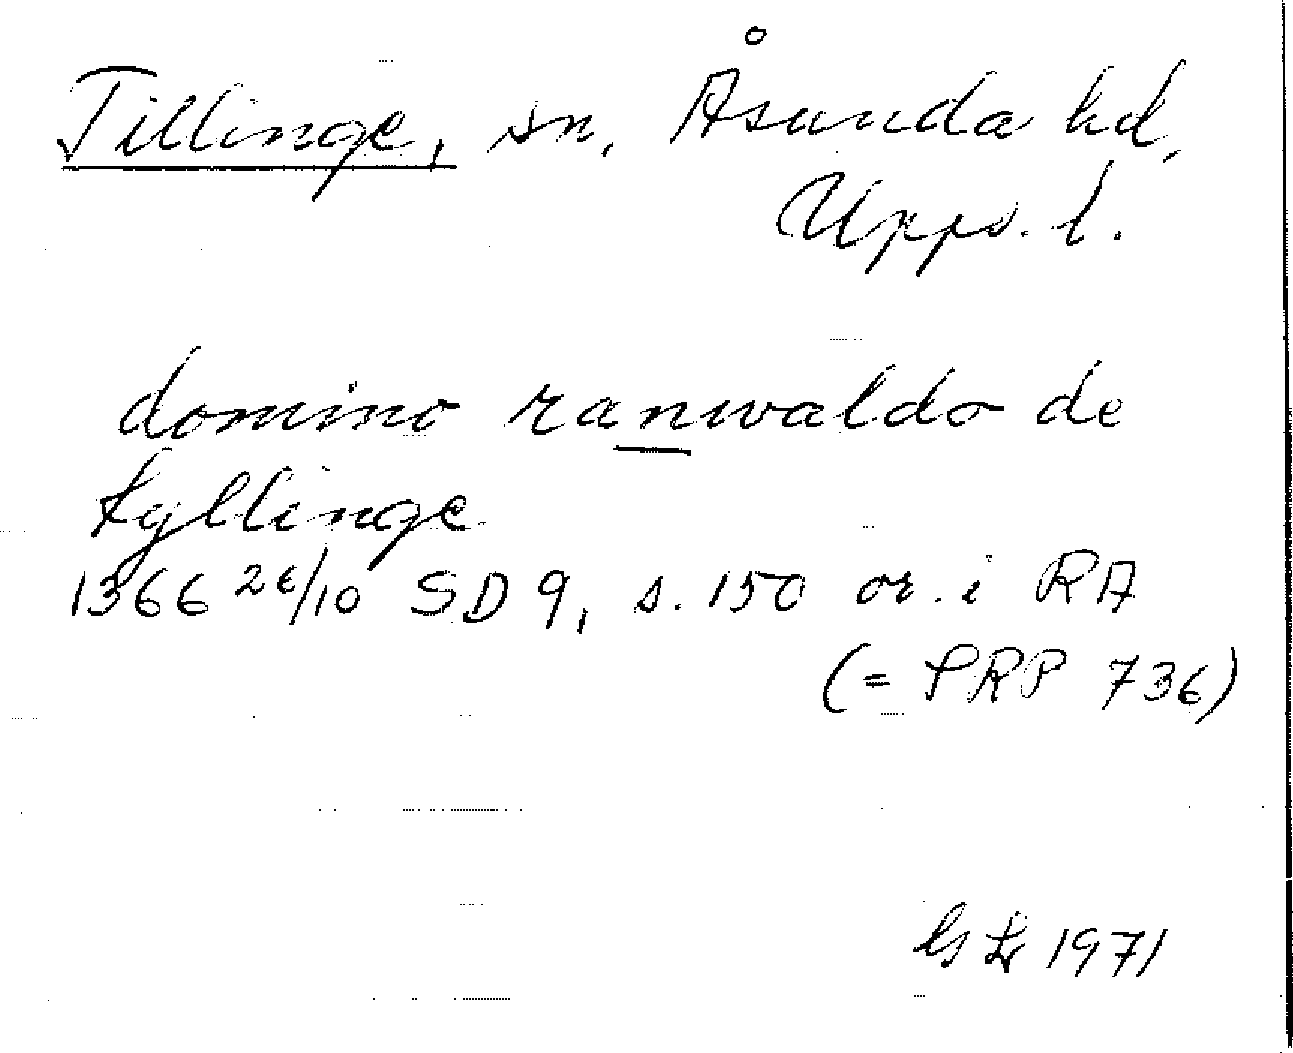 Tillinge, sn, Åsunda hd,
Upps. l.
domino ranwaldo de
tyllinge
1366 26/10 SD 9, s. 150 or. i RA
(= SRP 736)
1971